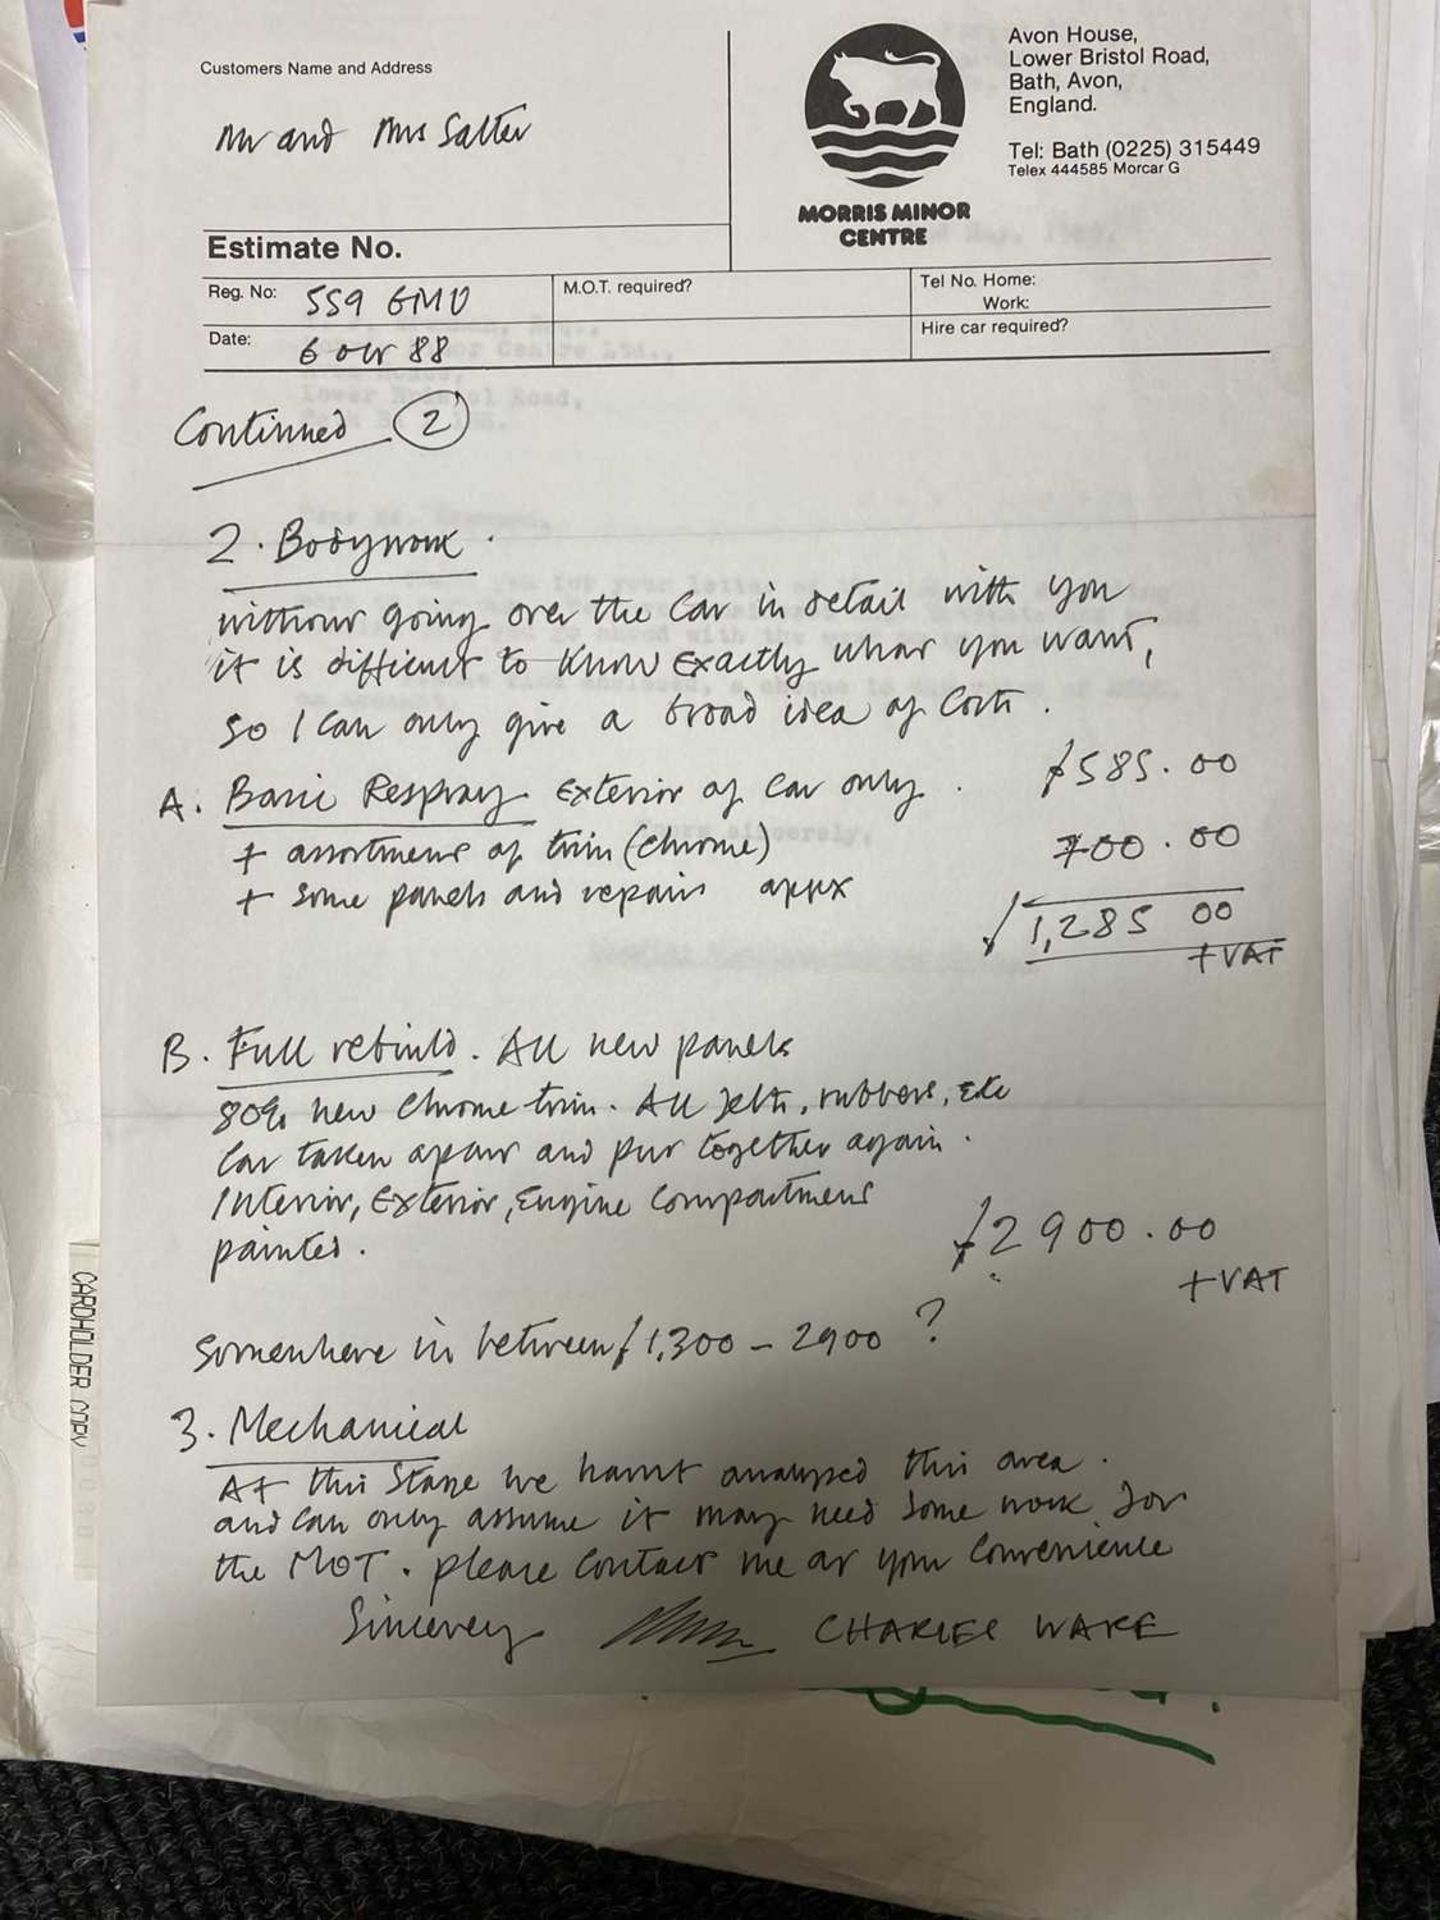 Customers Name and Address
Mr and Mrs Salter
Avon House,
Lower Bristol Road,
Bath, Avon,
England.
Tel: Bath (0225) 315449
Telex 444585 Morcar G
MORRIS MINOR
CENTRE
Estimate No.
Reg. No: 559 GMU
M.O.T. required?
Tel No. Home:
Work:
Date: 6 Oct 88
Hire car required?
Continued 2
2. Bodywork.
without going over the car in detail with you
it is difficult to know exactly what you want,
so I can only give a broad idea of costs.
A. Basic Respray exterior of car only. £585.00
+ assortment of trim (chrome) 700.00
+ some panels and repairs appx
£1,285 00
+ VAT
B. Full rebuild. All new panels
80% new chrome trim. All felts, rubbers, etc
Car taken apart and put together again.
Interior, Exterior, Engine Compartment
painted. £2900.00
+ VAT
Somewhere in between £1,300 - 2900 ?
3. Mechanical
At this stage we havnt analysed this area.
and can only assume it may need some work for
the MOT. please contact me at your convenience
Sincerely CHARLES WARE
CARDHOLDER COPY